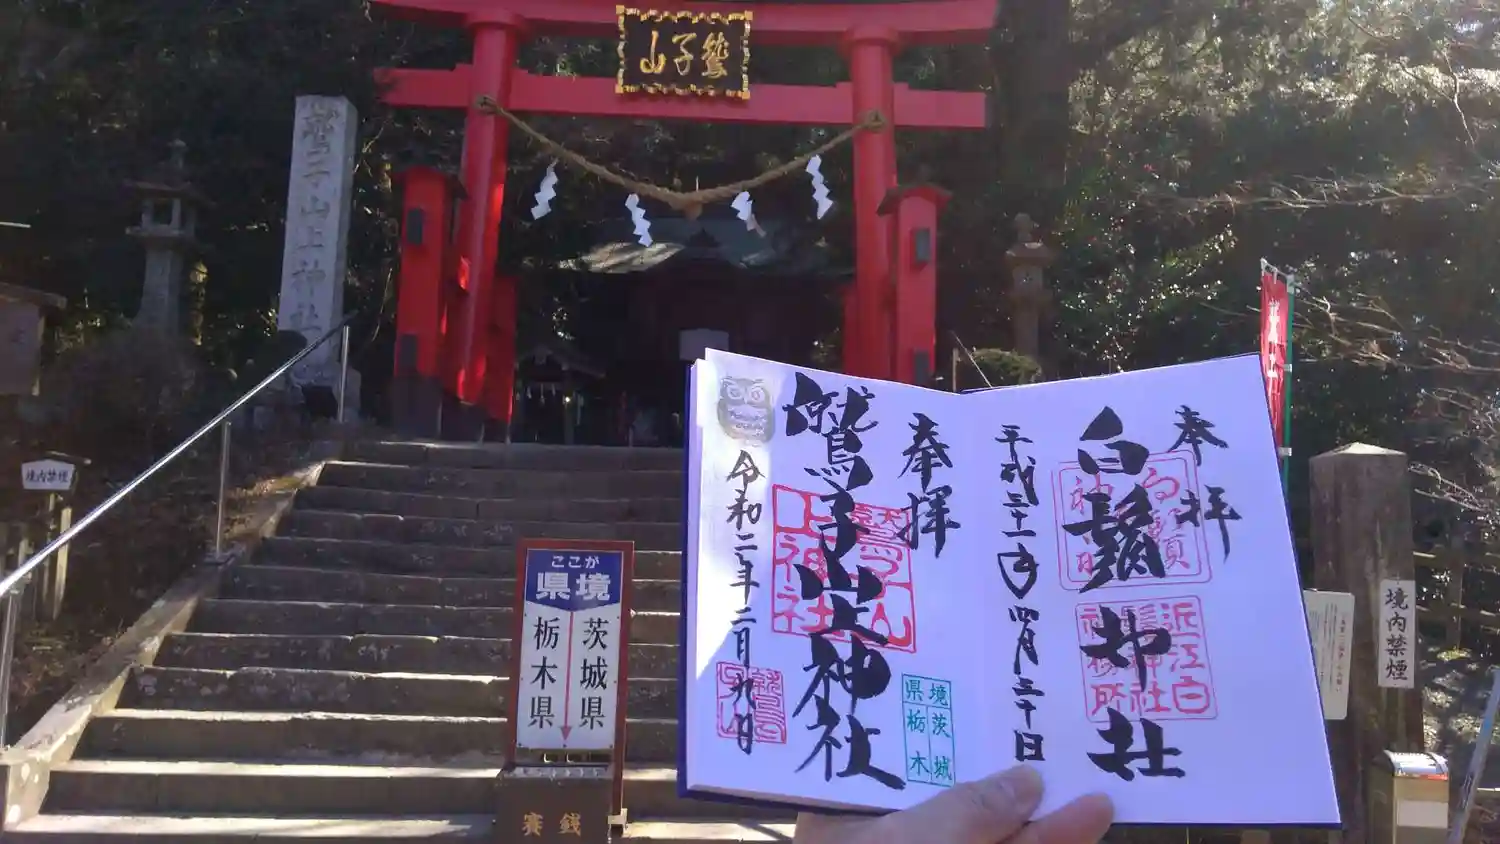 鷲子山
鷲子山上神社
境内禁煙
ここが
県境
茨城県
栃木県
賽銭
奉拝
鷲子山上神社
令和二年二月九日
鷲子山上神社
境茨城
県栃木
奉拝
白鬚神社
平成三十一年四月三十日
近江白
髭神社
社務所
境内禁煙